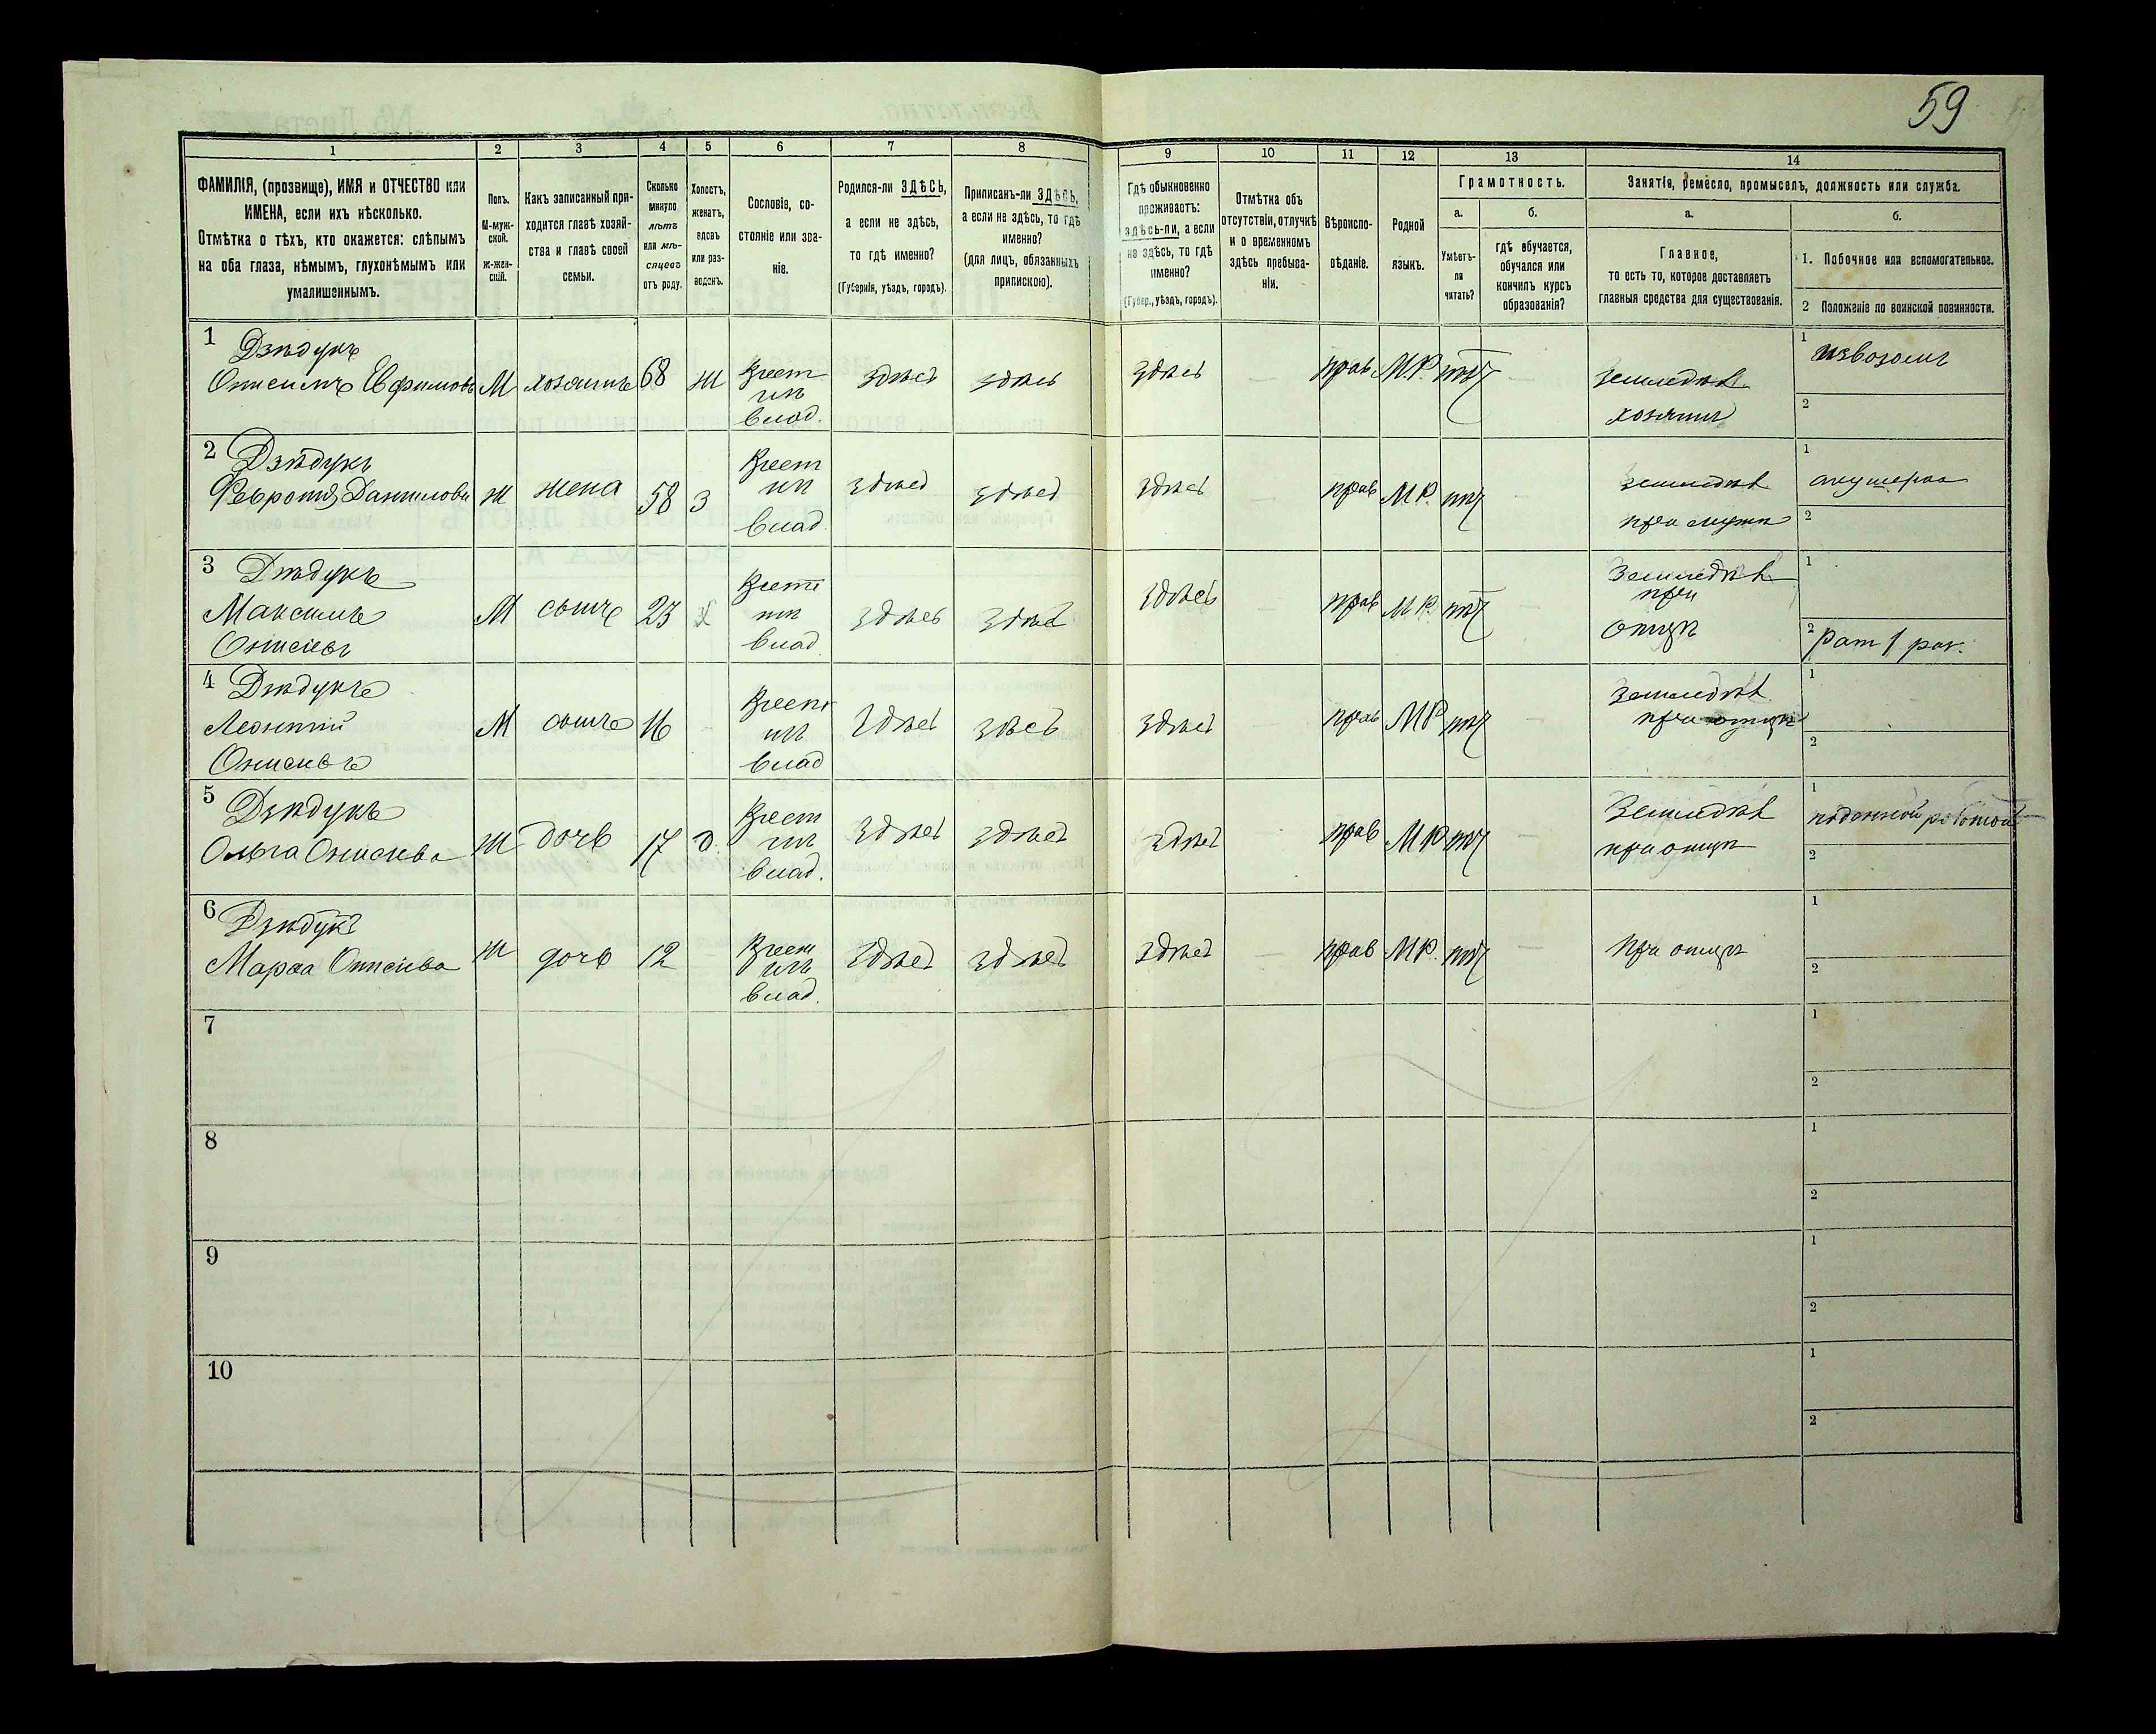 59
1 2 3 4 5 6 7 8 9 10 11 12 13 14
ФАМИЛІЯ, (прозвище), ИМЯ и ОТЧЕСТВО или
ИМЕНА, если ихъ нѣсколько.
Отмѣтка о тѣхъ, кто окажется: слѣпымъ
на оба глаза, нѣмымъ, глухонѣмымъ или
умалишеннымъ.
Полъ.
М-муж-
ской.
ж-жен-
скій.
Какъ записанный при-
ходится главѣ хозяй-
ства и главѣ своей
семьи.
Сколько
минуло
лѣтъ
или мѣ-
сяцевъ
отъ роду.
Холостъ,
женатъ,
вдовъ
или раз-
веденъ.
Сословіе, со-
стояніе или зва-
ніе.
Родился-ли ЗДѢСЬ,
а если не здѣсь,
то гдѣ именно?
(Губернія, уѣздъ, городъ).
Приписанъ-ли ЗДѢСЬ,
а если не здѣсь, то гдѣ
именно?
(для лицъ, обязанныхъ
припискою).
Гдѣ обыкновенно
проживаетъ:
здѣсь-ли, а если
не здѣсь, то гдѣ
именно?
(Губер., уѣздъ, городъ).
Отмѣтка объ
отсутствіи, отлучкѣ
и о временномъ
здѣсь пребыва-
ніи.
Вѣроиспо-
вѣданіе.
Родной
языкъ.
Грамотность.
а.
Умѣетъ-
ли
читать?
б.
гдѣ обучается,
обучался или
кончилъ курсъ
образованія?
Занятіе, ремесло, промыселъ, должность или служба.
а.
Главное,
то есть то, которое доставляетъ
главныя средства для существованія.
б.
1. Побочное или вспомогательное.
2 Положеніе по воинской повинности.
1 Дзѣдукъ
Онисимъ Евфимовъ М хозяинъ 68 ж Крест
изъ
влад. здѣсь здѣсь здѣсь прав. М.Р. нѣт земледѣл
хозяинъ 1 извозомъ
2
2 Дзѣдукъ
Февронія Данилова ж жена 58 З Крест
изъ
влад. здѣсь здѣсь здѣсь прав М Р. нѣт земледѣл
при мужѣ 1 акушерка
2
3 Дзѣдукъ
Максимъ
Онисиовъ М сынъ 23 х Крест
изъ
влад. здѣсь здѣсь здѣсь прав М Р. нѣт Земледѣл
при
отцѣ 1
2 Рат 1 раз.
4 Дзѣдукъ
Леонтій
Онисиовъ М сынъ 16 Крест
изъ
влад здѣсь здѣсь здѣсь прав М Р нѣт земледѣл
при отцѣ 1
2
5 Дзѣдукъ
Ольга Онисиова ж дочь 17 д. Крест
изъ
влад. здѣсь здѣсь здѣсь прав М Р нѣт Земледѣл
при отцѣ 1 поденной работой
2
6 Дзѣдукъ
Марѳа Онисиова ж дочь 12 Крест
изъ
влад. здѣсь здѣсь здѣсь прав М Р. нѣт При отцѣ 1
2
7 1
2
8 1
2
9 1
2
10 1
2